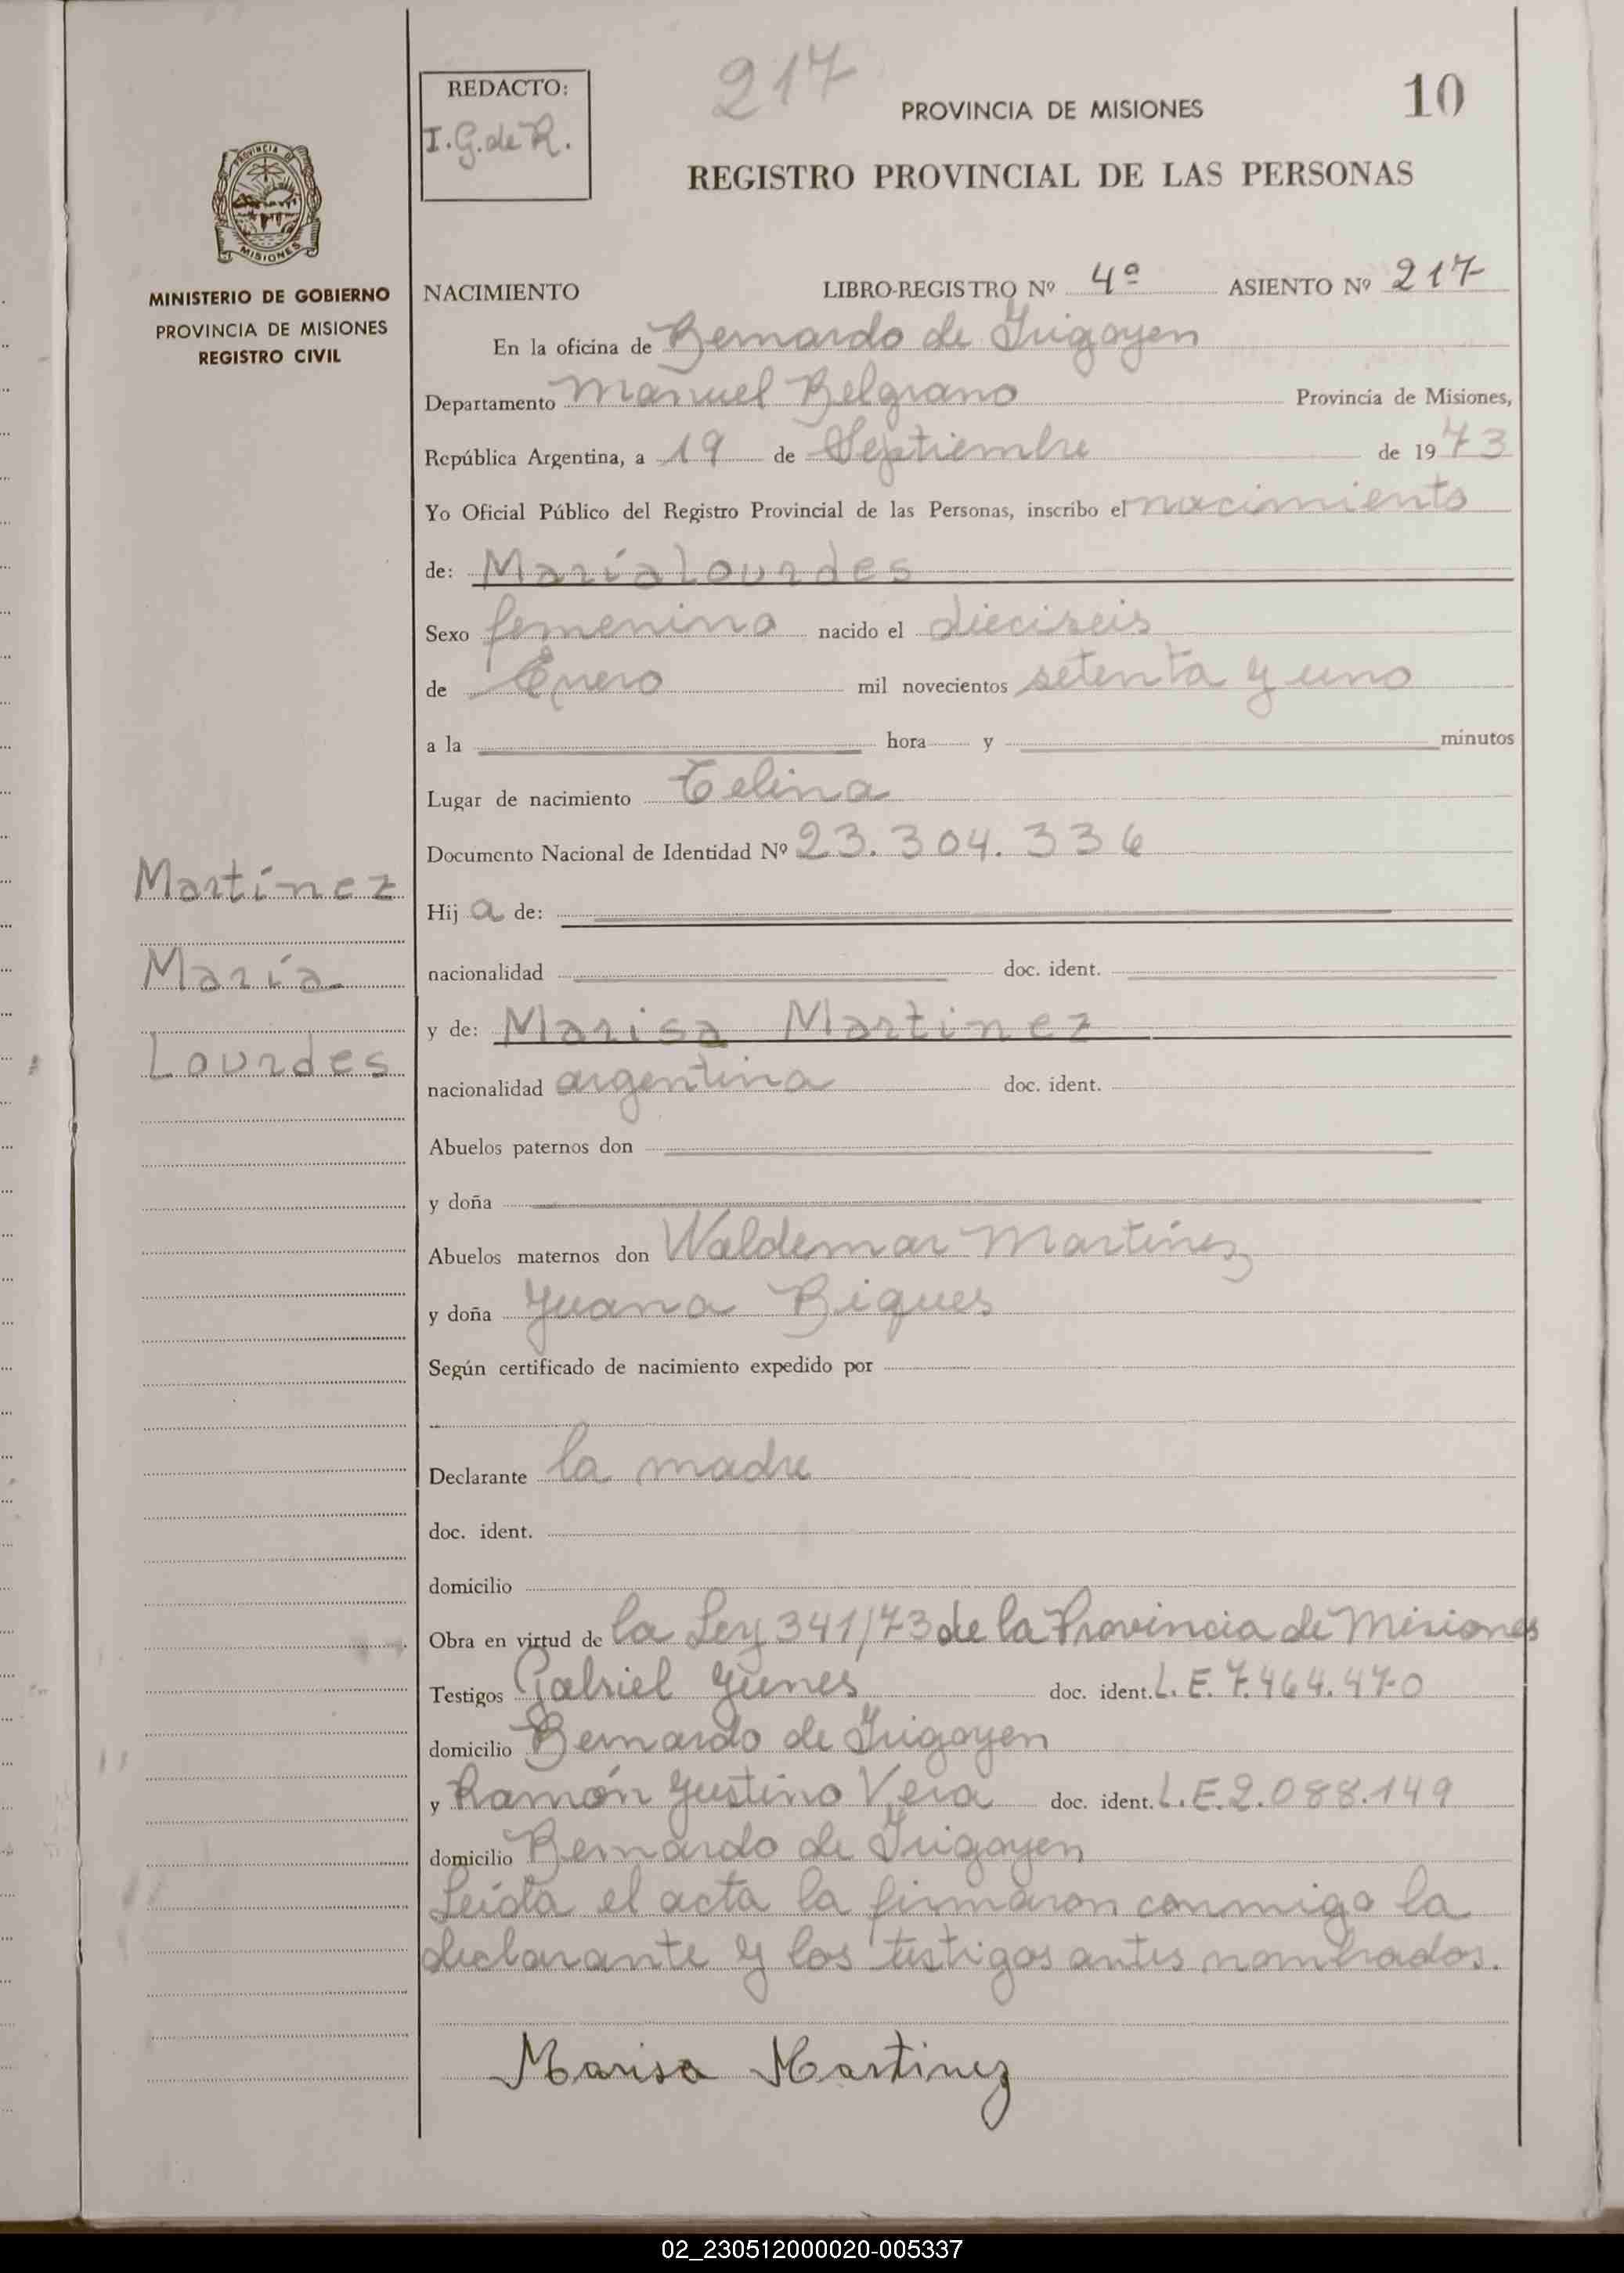 217
REDACTO:
I.G.de R.
PROVINCIA DE MISIONES
10
REGISTRO PROVINCIAL DE LAS PERSONAS
PROVINCIA DE
MISIONES
MINISTERIO DE GOBIERNO
PROVINCIA DE MISIONES
REGISTRO CIVIL
NACIMIENTO LIBRO-REGISTRO Nº 4º ASIENTO Nº 217
En la oficina de Bernardo de Irigoyen
Departamento Manuel Belgrano Provincia de Misiones,
República Argentina, a 19 de Septiembre de 1973
Yo Oficial Público del Registro Provincial de las Personas, inscribo el nacimiento
de: María Lourdes
Sexo femenino nacido el dieciseis
de Enero mil novecientos setenta y uno
a la hora y minutos
Lugar de nacimiento Celina
Documento Nacional de Identidad Nº 23.304.336
Martínez
María
Lourdes
Hija de:
nacionalidad doc. ident.
y de: Marisa Martinez
nacionalidad argentina doc. ident.
Abuelos paternos don
y doña
Abuelos maternos don Waldemar Martínez
y doña Juana Biques
Según certificado de nacimiento expedido por
Declarante la madre
doc. ident.
domicilio
Obra en virtud de la Ley 341/73 de la Provincia de Misiones
Testigos Gabriel Yunes doc. ident. L.E. 7.464.470
domicilio Bernardo de Irigoyen
y Ramón Justino Vera doc. ident. L.E.2.088.149
domicilio Bernardo de Irigoyen
Leída el acta la firmaron conmigo la
declarante y los testigos antes nombrados.
Marisa Martinez
02_230512000020-005337